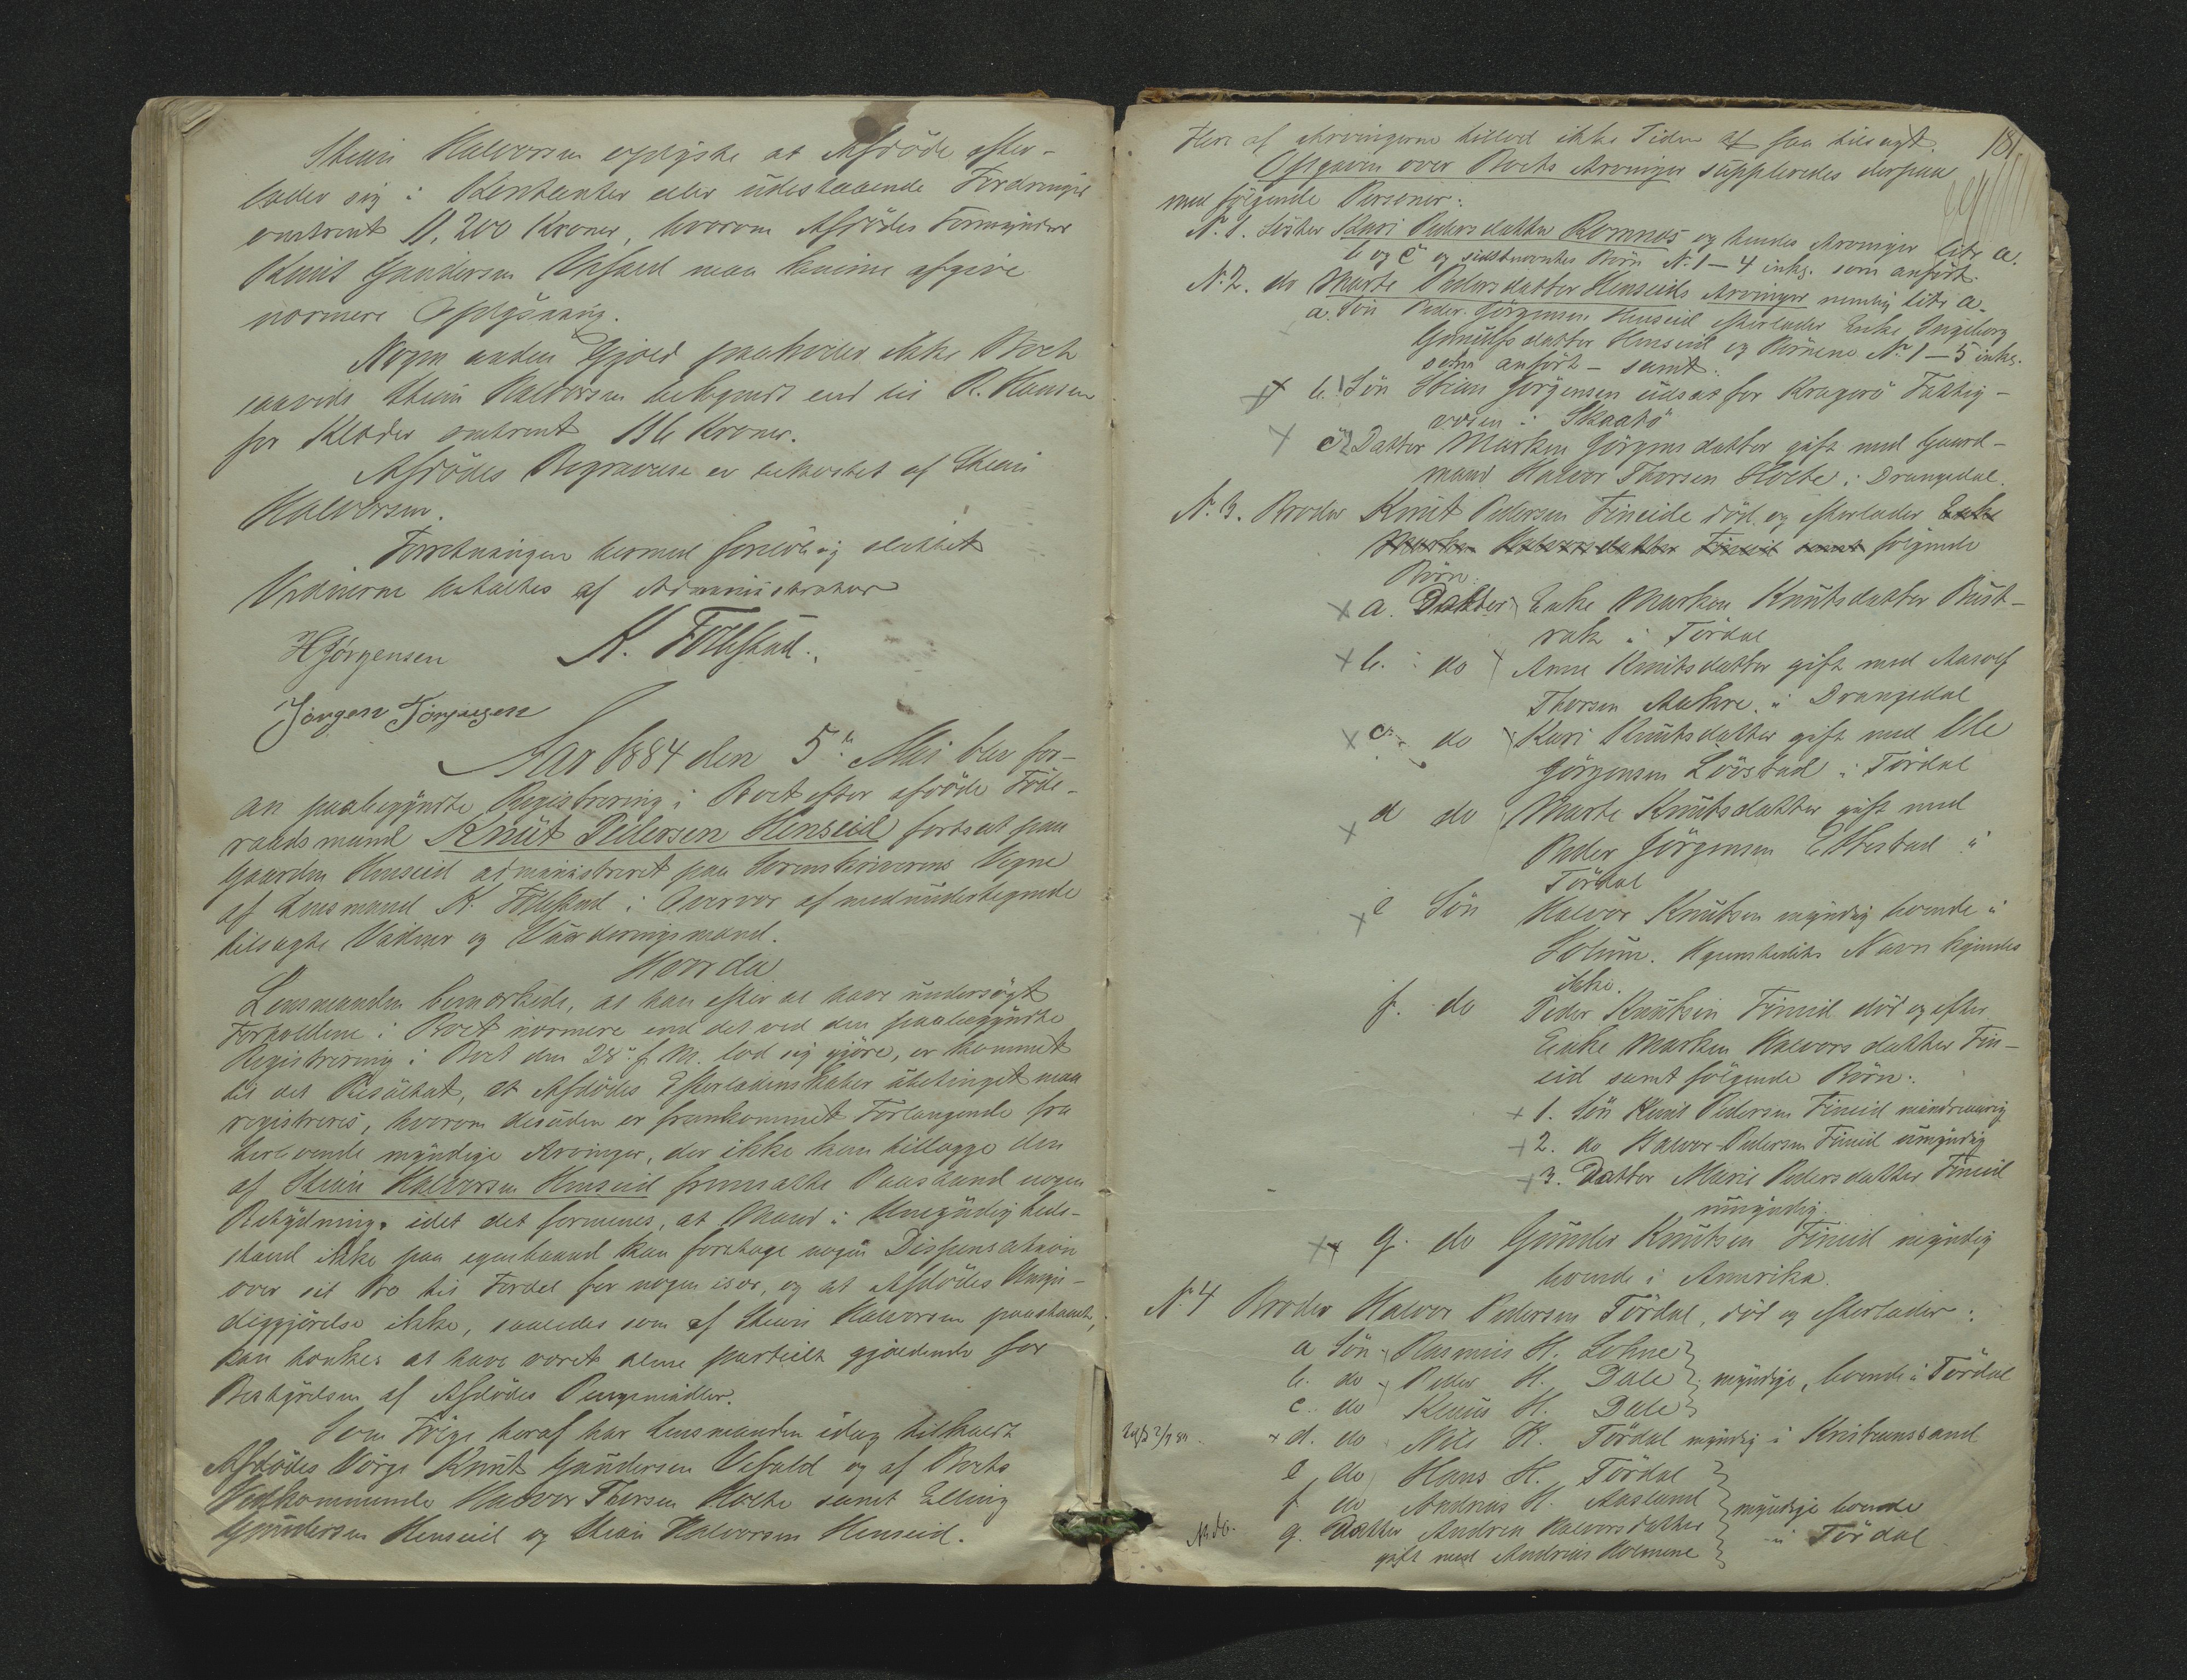 Stian Halvorsen oplyste at Afdöde efter-
lader sig i Kontanter eller udestaaende Fordringer
omtrent 11,200 Kroner, hvorom Afdödes Formynder
Knut Gundersen Vefald maa kunne afgive
nærmere Oplysning.
Nogen anden Gjæld paahviler ikke Boet
saavidt Stian Halvorsen bekjendt end til R. Hansen
for Klæder omtrent 116 Kroner.
Afdödes Begravelse er bekostet af Stian
Halvorsen.
Forretningen hermed foreløbig sluttet
Vidnerne betaltes af Administrator
HJörgensen K. Föllestad.
Jörgen Jörgensen
Aar 1884 den 5te Mai blev for-
an paabegyndte Registrering i Boet efter afdöde Föde-
raadsmand Knut Pedersen Henseid fortsat paa
Gaarden Henseid administreret paa Sorenskriverens Vegne
af Lensmand K. Föllestad i Overvær af medundertegnede
tilsagte Vidner og Vurderingsmænd.
Hvorda
Lensmanden bemærkede, at han efter at have undersøgt
Forholdene i Boet nærmere end det ved den paabegyndte
Registrering i Boet den 28de f. M. lod sig gjöre, er kommet
til det Resultat, at Afdödes Efterladenskaber ubetinget maa
registreres, hvorom desuden er fremkommet Forlangende fra
herboende myndige Arvinger, der ikke kan tillægge den
af Stian Halvorsen Henseid fremsatte Paastand nogen
Betydning, idet det formenes, at Mand i Umyndigheds-
stand ikke paa egenhaand kan foretage nogen Dispensation
over sit Bo til Fordel for nogen især, og at Afdödes Umyn-
diggjörelse ikke, saaledes som af Stian Halvorsen paastaaet,
kan tænkes at have været alene partielt gjældende for
Bestyrelsen af Afdödes Pengemidler.
Som Fölge heraf har Lensmanden idag tilkaldt
Afdödes Værge Knut Gundersen Vefald og af Boets
Vedkommende Halvor Thorsen Holte samt Elling
Gundersen Henseid og Stian Halvorsen Henseid.
181
Flere af Arvingerne tillod ikke Tiden at faa tilsagt.
Opgaven over Boets Arvinger suppleredes derpaa
med følgende Personer:
No. 1. Söster Kari Pedersdatter Bomnes og hendes Arvinger litr a.
b og c og sidstnævntes Börn No 1-4 inkl. som anfört.
No. 2. do Marte Pedersdatter Henseids Arvinger nemlig litr a.
a. Sön Peder Jörgensen Henseid efterlader Enke Ingeborg
Gunulfsdatter Henseid og Börnene No 1-5 inkl.
som anfört - samt.
b. Sön Stian Jörgensen udsat for Kragerö Fattig-
væsen i Skaatö
c. Datter Marken Jörgensdatter gift med Gaard-
mand Halvor Thorsen Holte i Drangedal.
No. 3. Broder Knut Pedersen Fineide död og efterlader Enke
Marken Halvorsdatter Fineid samt følgende
Börn:
a. Datter Enke Marken Knutsdatter Bust-
rak i Tördal
b. do Anne Knutsdatter gift med Aasolf
Thorsen Aakre i Drangedal
c. do Kari Knutsdatter gift med Ole
Jörgensen Lööstad i Tördal
d do Marte Knutsdatter gift med
Peder Jörgensen Ettestad i
Tördal
e Sön Halvor Knutsen myndig boende i
Solum. Gjenstedets Navn kjendes
ikke.
f. do Peder Knutsen Fineid död og efter
Enke Marken Halvorsdatter Fin-
eid samt følgende Börn:
1. Sön Knut Pedersen Fineid mindreaarig
2. do Halvor Pedersen Fineid umyndig
3. Datter Marie Pedersdatter Fineid
umyndig.
g. do Gunder Knutsen Fineid myndig
boende i Amerika.
No 4 Broder Halvor Pedersen Tördal, död og efterlader:
a Sön Rasmus H. Lohne
b. do Peder H. Dale myndige, boende i Tördal
c. do Knut H. Dale
d. do Nils H. Tördal myndig i Kristianssand
e do Hans H. Tördal
f do Andreas H. Aasland myndige boende
g. Datter Andrea Halvorsdatter i Tördal
gift med Andreas Holmene